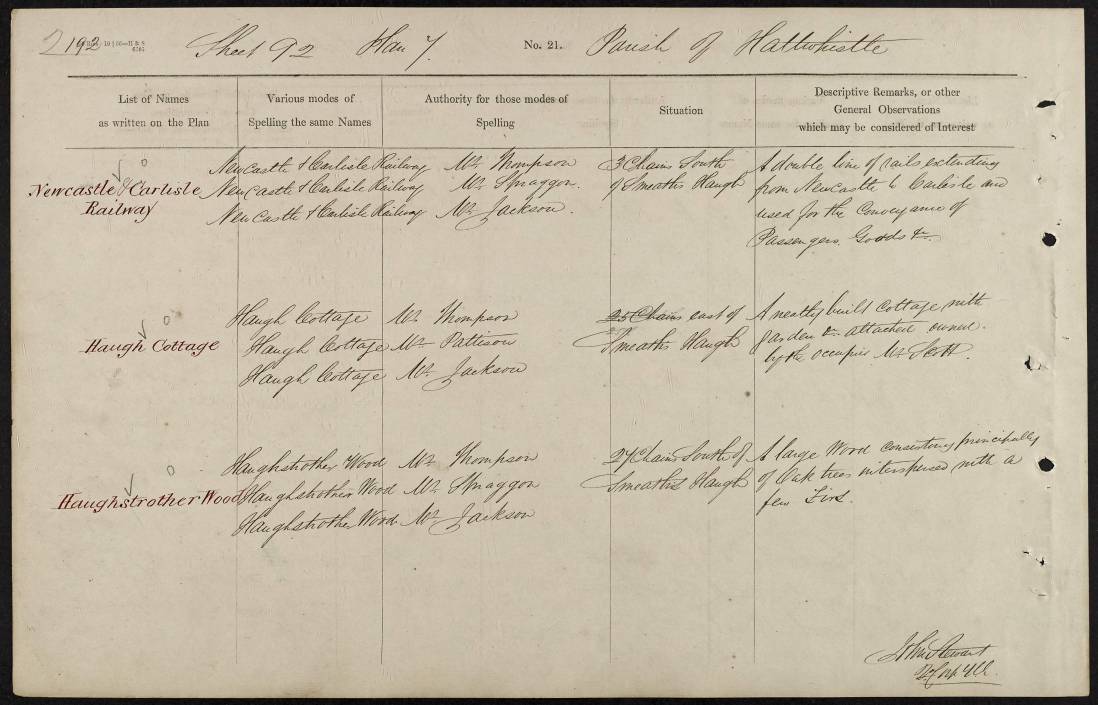 2 192 Sheet 92 Plan 7. No. 21. Parish of Haltwhistle
List of Names
as written on the Plan
Various modes of
Spelling the same Names
Authority for those modes of
Spelling
Situation
Descriptive Remarks, or other
General Observations
which may be considered of Interest
Newcastle & Carlisle
Railway
Newcastle & Carlisle Railway
Newcastle & Carlisle Railway
Newcastle & Carlisle Railway
Mr. Thompson
Mr. Spraggon.
Mr. Jackson.
3 Chains South
of Smeaths Haugh
A double line of rails extending
from Newcastle to Carlisle and
used for the Conveyance of
Passengers, Goods &c.
Haugh Cottage
Haugh Cottage
Haugh Cottage
Haugh Cottage
Mr. Thompson
Mr. Pattison
Mr. Jackson
25 Chains east of
Smeaths Haugh
A neatly built cottage with
garden &c. attached owned
by the occupier Mr. Scott.
Haughstrother Wood
Haughstrother Wood
Haughstrother Wood
Haughstrother Wood
Mr. Thompson
Mr. Spraggon
Mr. Jackson
27 Chains South of
Smeaths Haugh
A large Wood consisting principally
of Oak trees interspersed with a
few Firs.
John Stewart